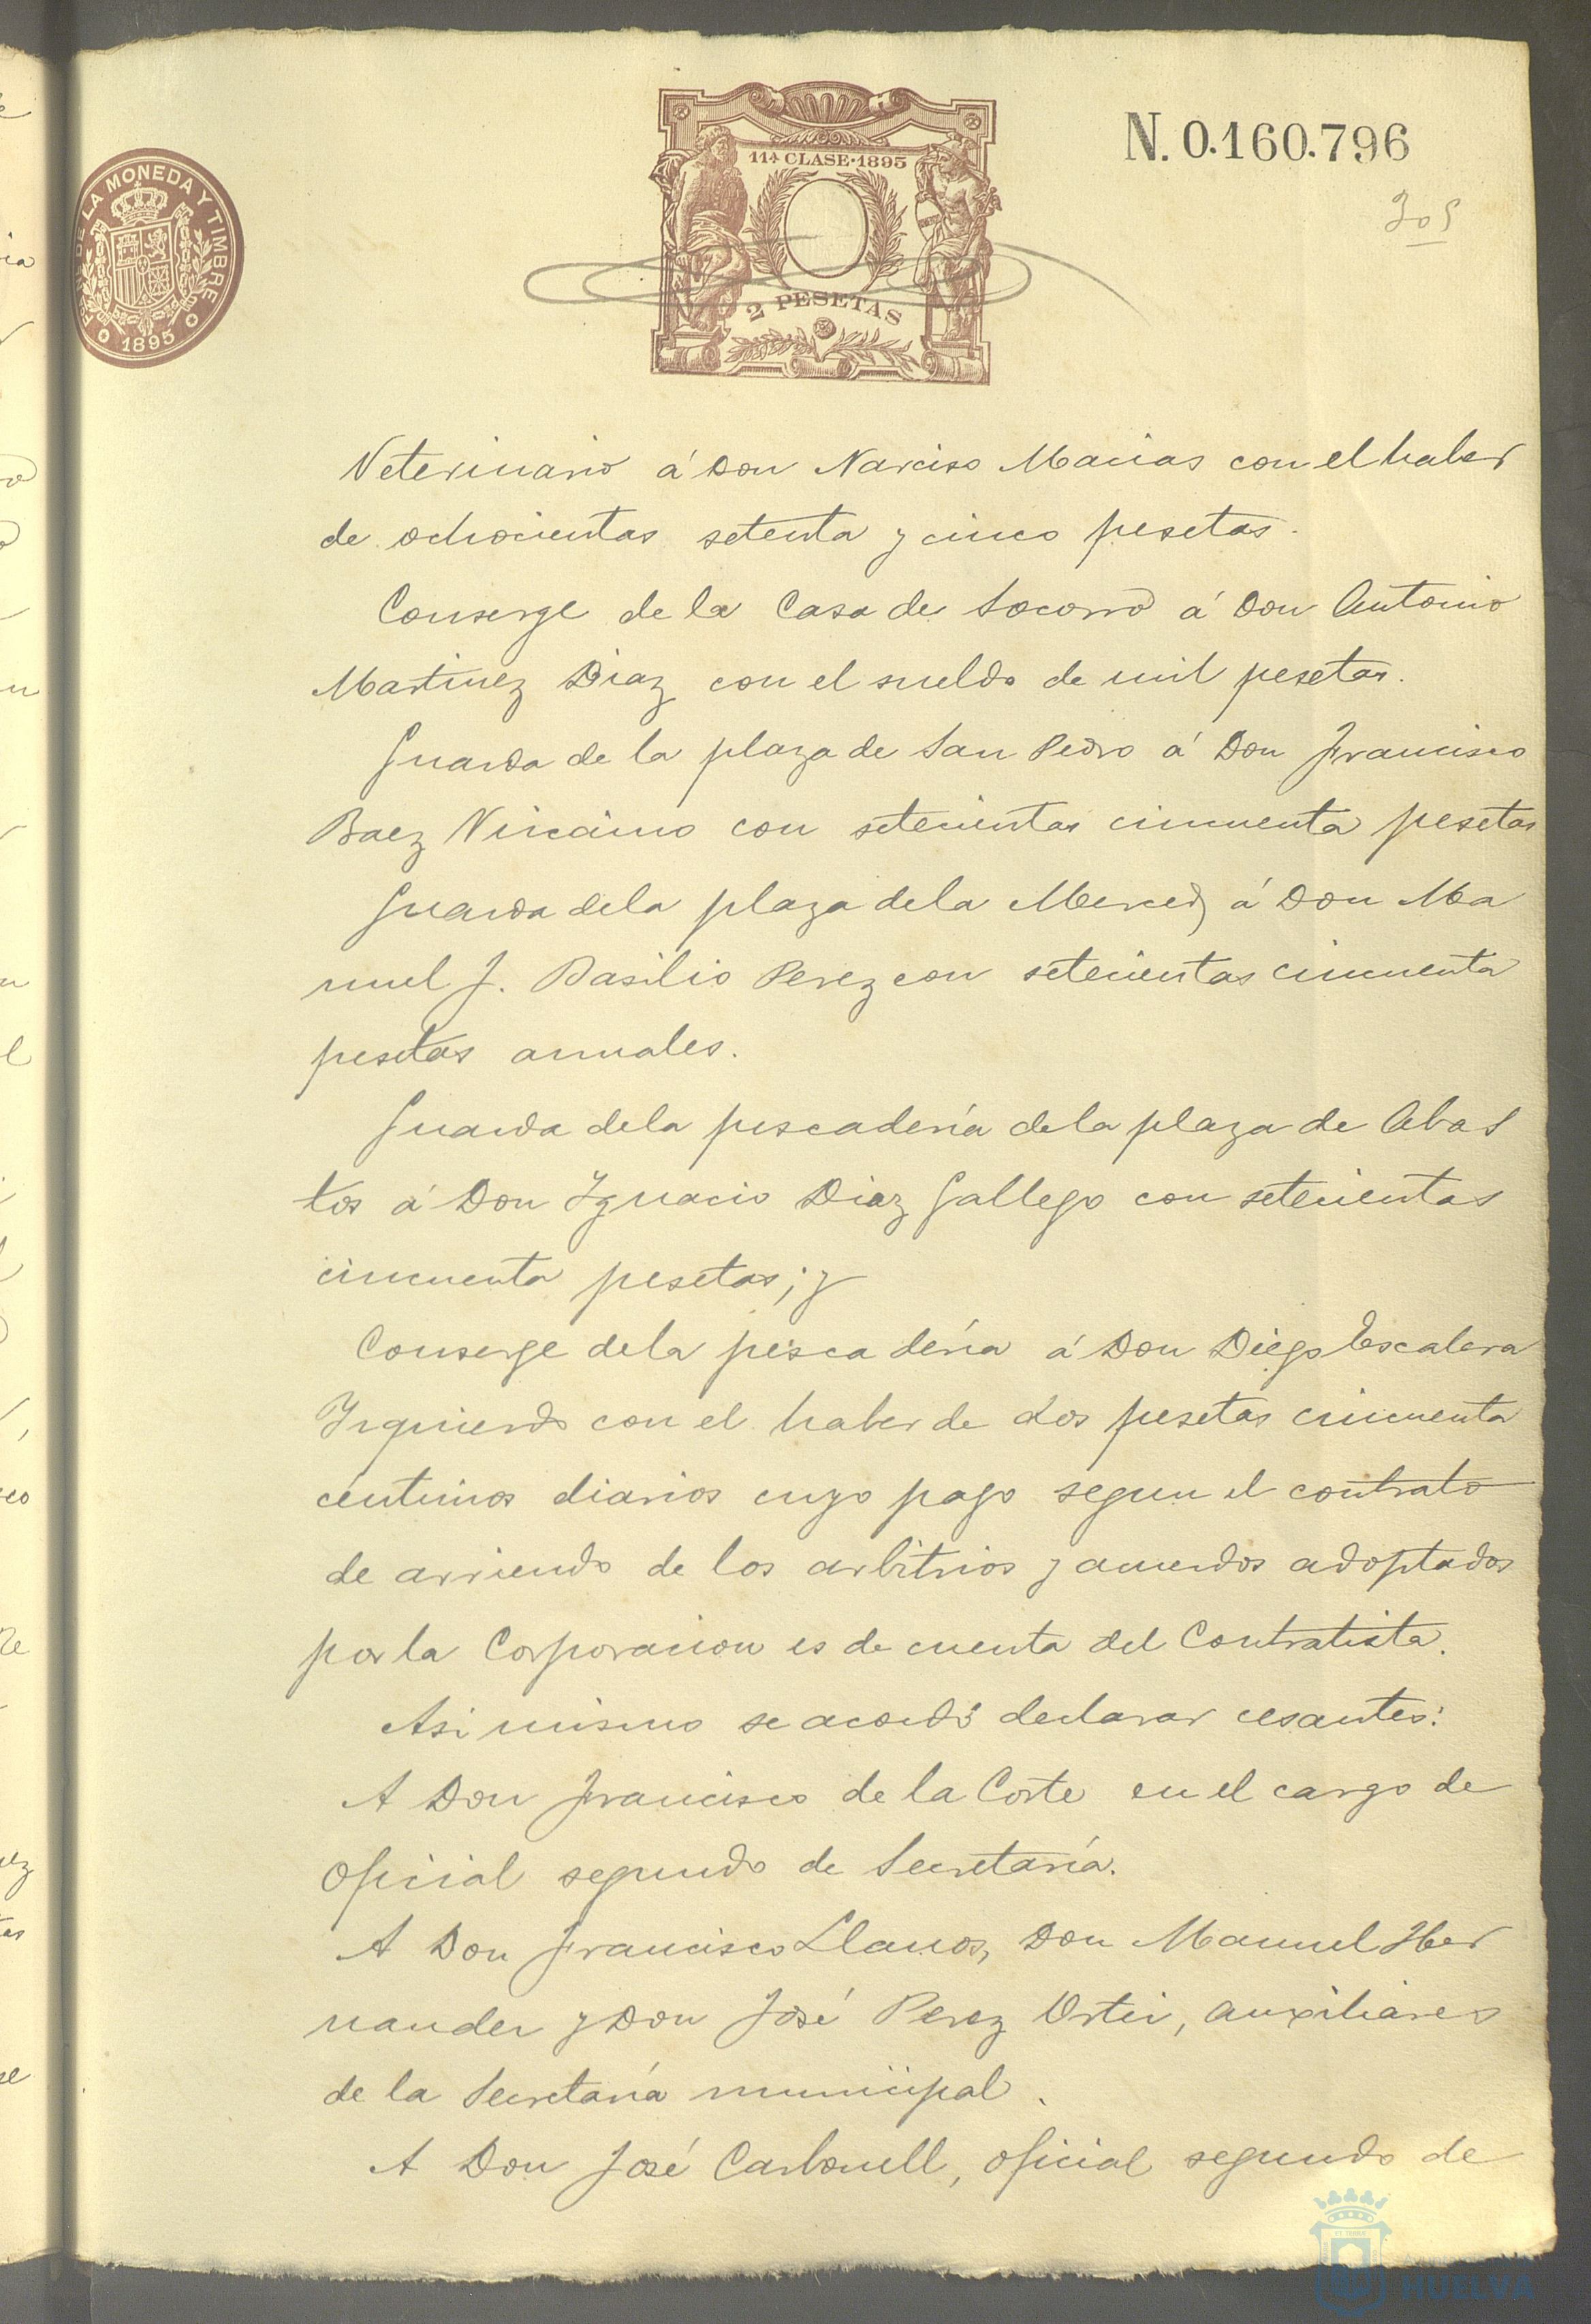 N. 0.160.796
11ª CLASE·1895
2 PESETAS
DE LA MONEDA Y TIMBRE
1895
Veterinario á Don Narciso Macias con el haber
de ochocientas setenta y cinco pesetas.
Conserge de la Casa de Socorro á Don Antonio
Martinez Diaz con el sueldo de mil pesetas.
Guarda de la plaza de San Pedro á Don Francisco
Baez con setecientas cincuenta pesetas
Guarda de la plaza de la Merced á Don Ma
nuel J. Basilio Perez con setecientas cincuenta
pesetas anuales.
Guarda de la pescadería de la plaza de Abas
tos á Don Ignacio Diaz Gallego con setecientas
cincuenta pesetas; y
Conserge de la pescadería á Don Diego Escalera
Izquierdo con el haber de dos pesetas cincuenta
céntimos diarios cuyo pago segun el contrato
de arriendo de los arbitrios y acuerdos adoptados
por la Corporacion es de cuenta del Contratista.
Asi mismo se acordó declarar cesantes:
A Don Francisco de la Corte en el cargo de
Oficial segundo de Secretaría.
A Don Francisco Llanos, Don Manuel Her
nandez y Don José Perez, auxiliares
de la Secretaría municipal.
A Don José Carbonell, oficial segundo de
HUELVA